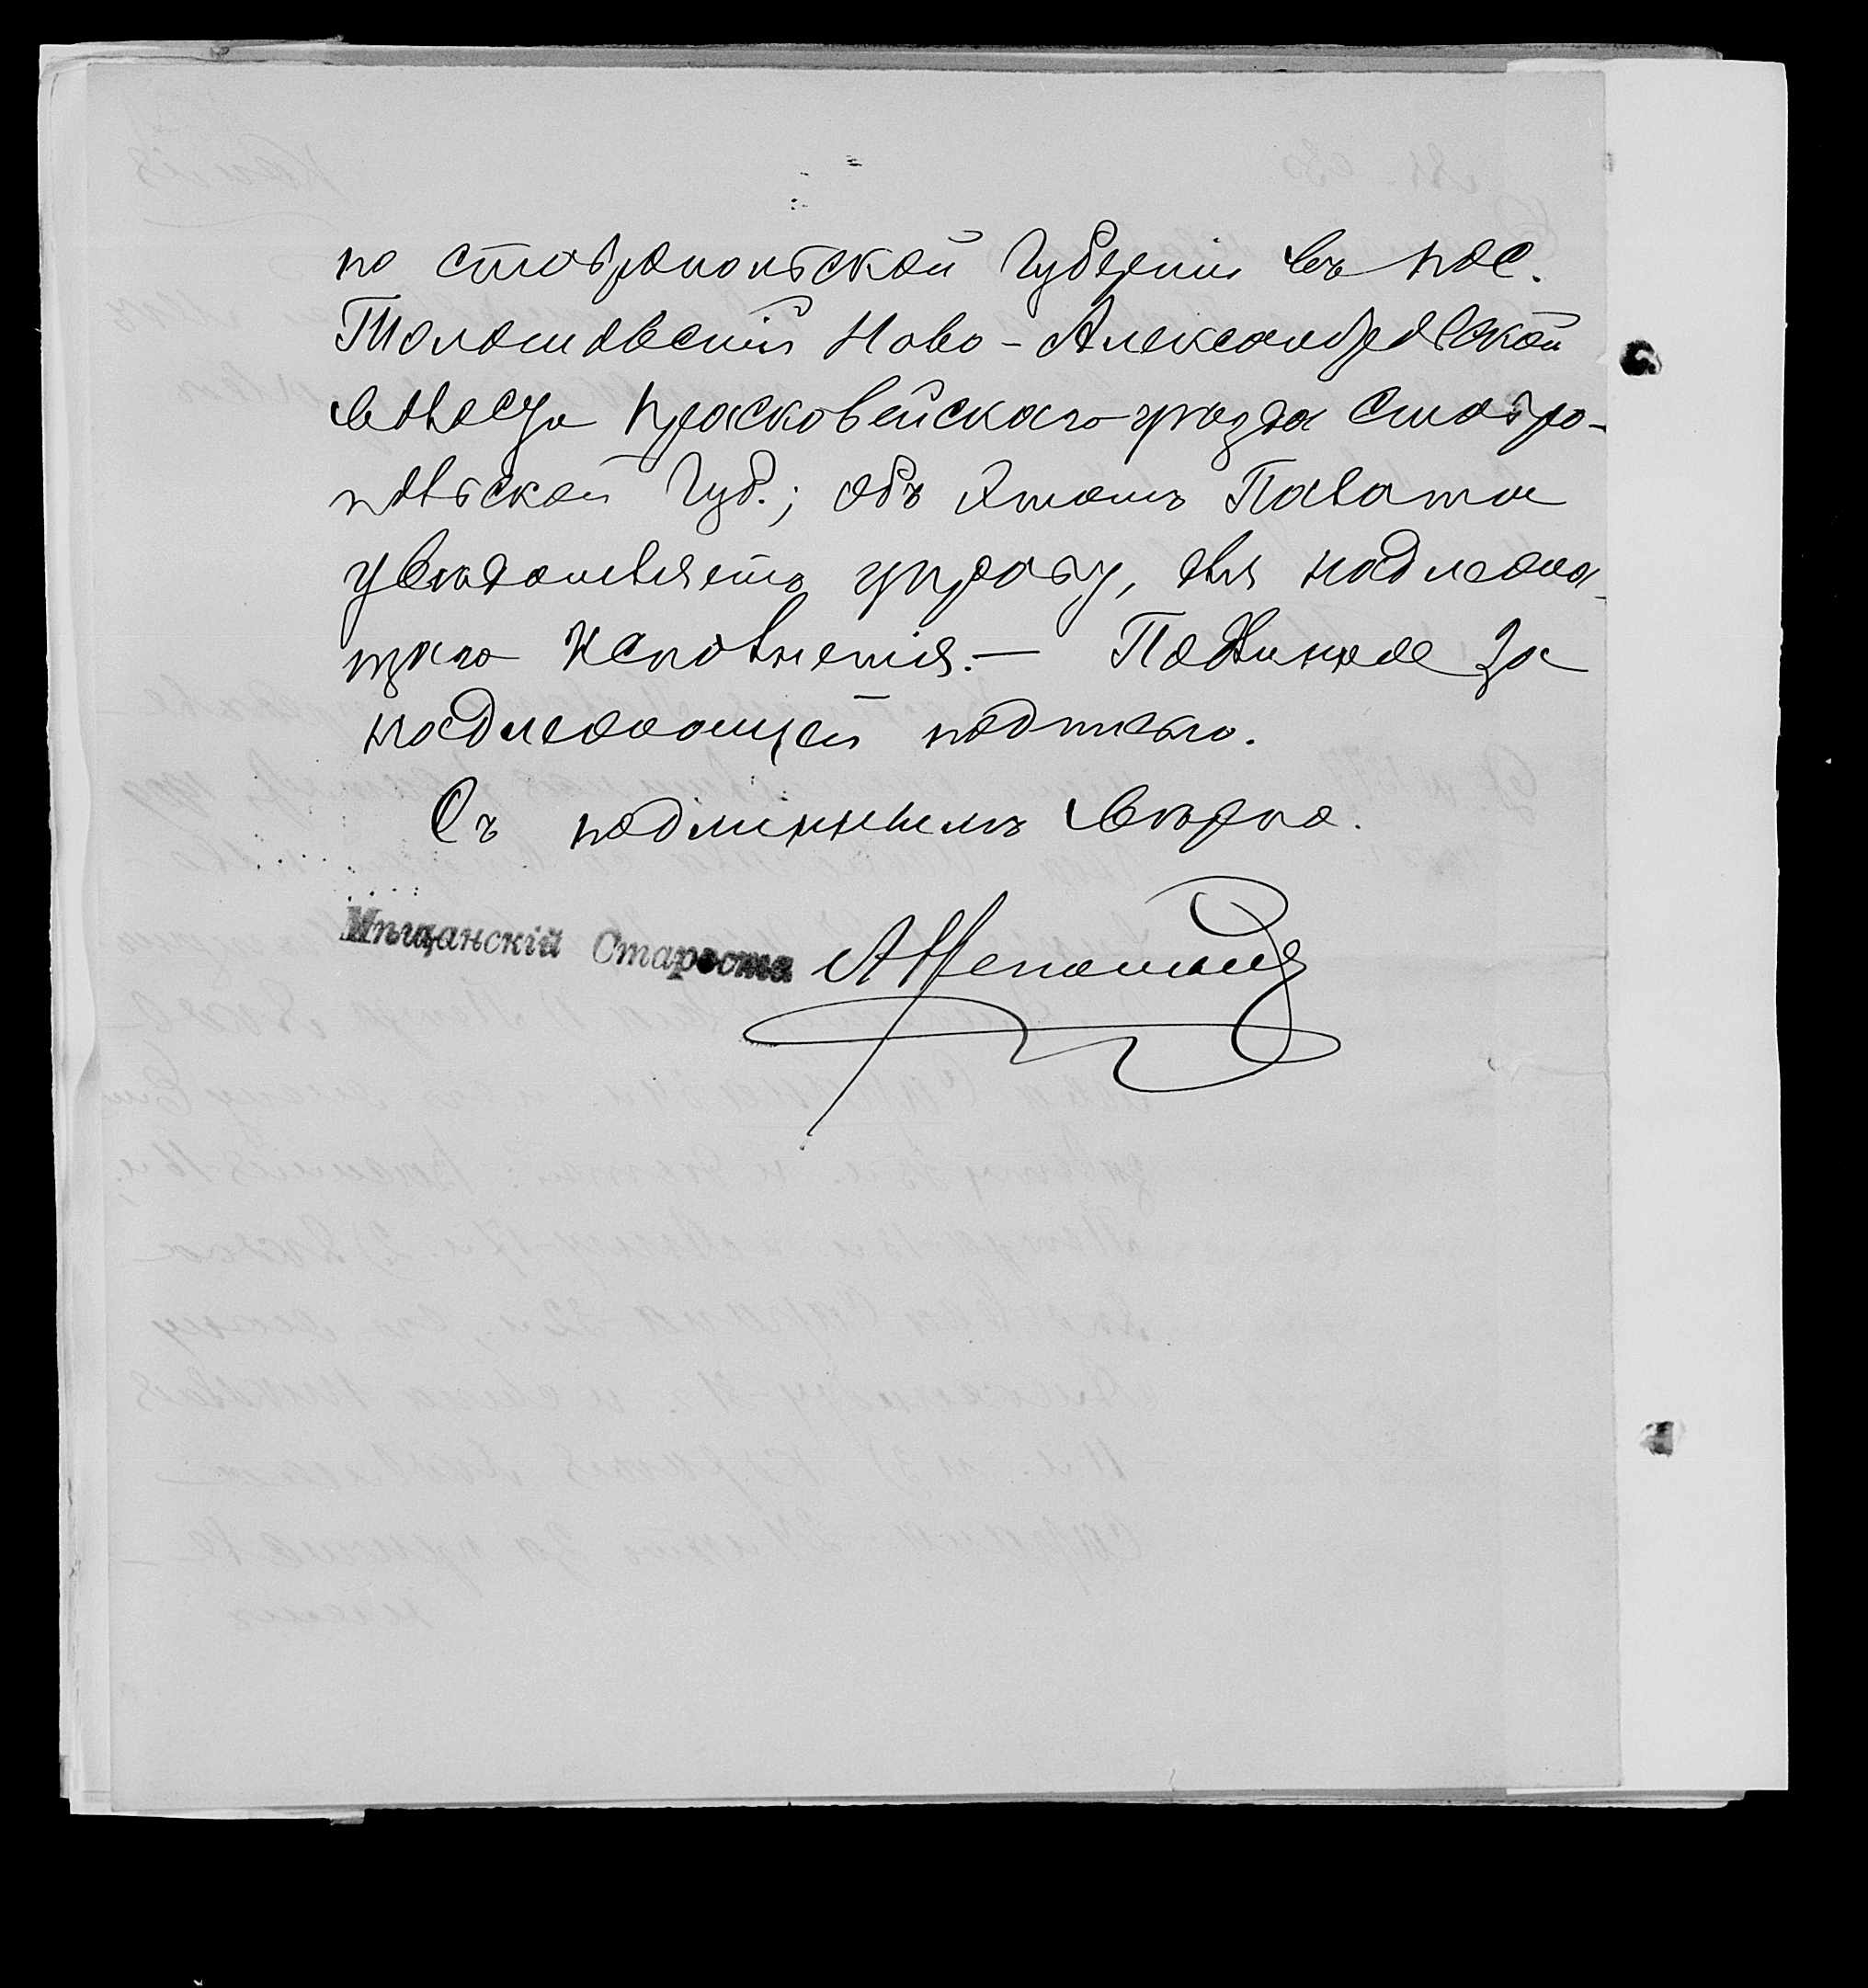 по ставропольской губерніи въ пос.
Толстовскій Ново-Александровской
волости Прасковейскаго уѣзда Ставро-
польской Губ.; объ этомъ Палата
увѣдомляетъ управу, для надлежа-
щаго исполненія.— Подлинное за
надлежащей подписью.
Съ подлиннымъ вѣрно.
Мѣщанскій Староста